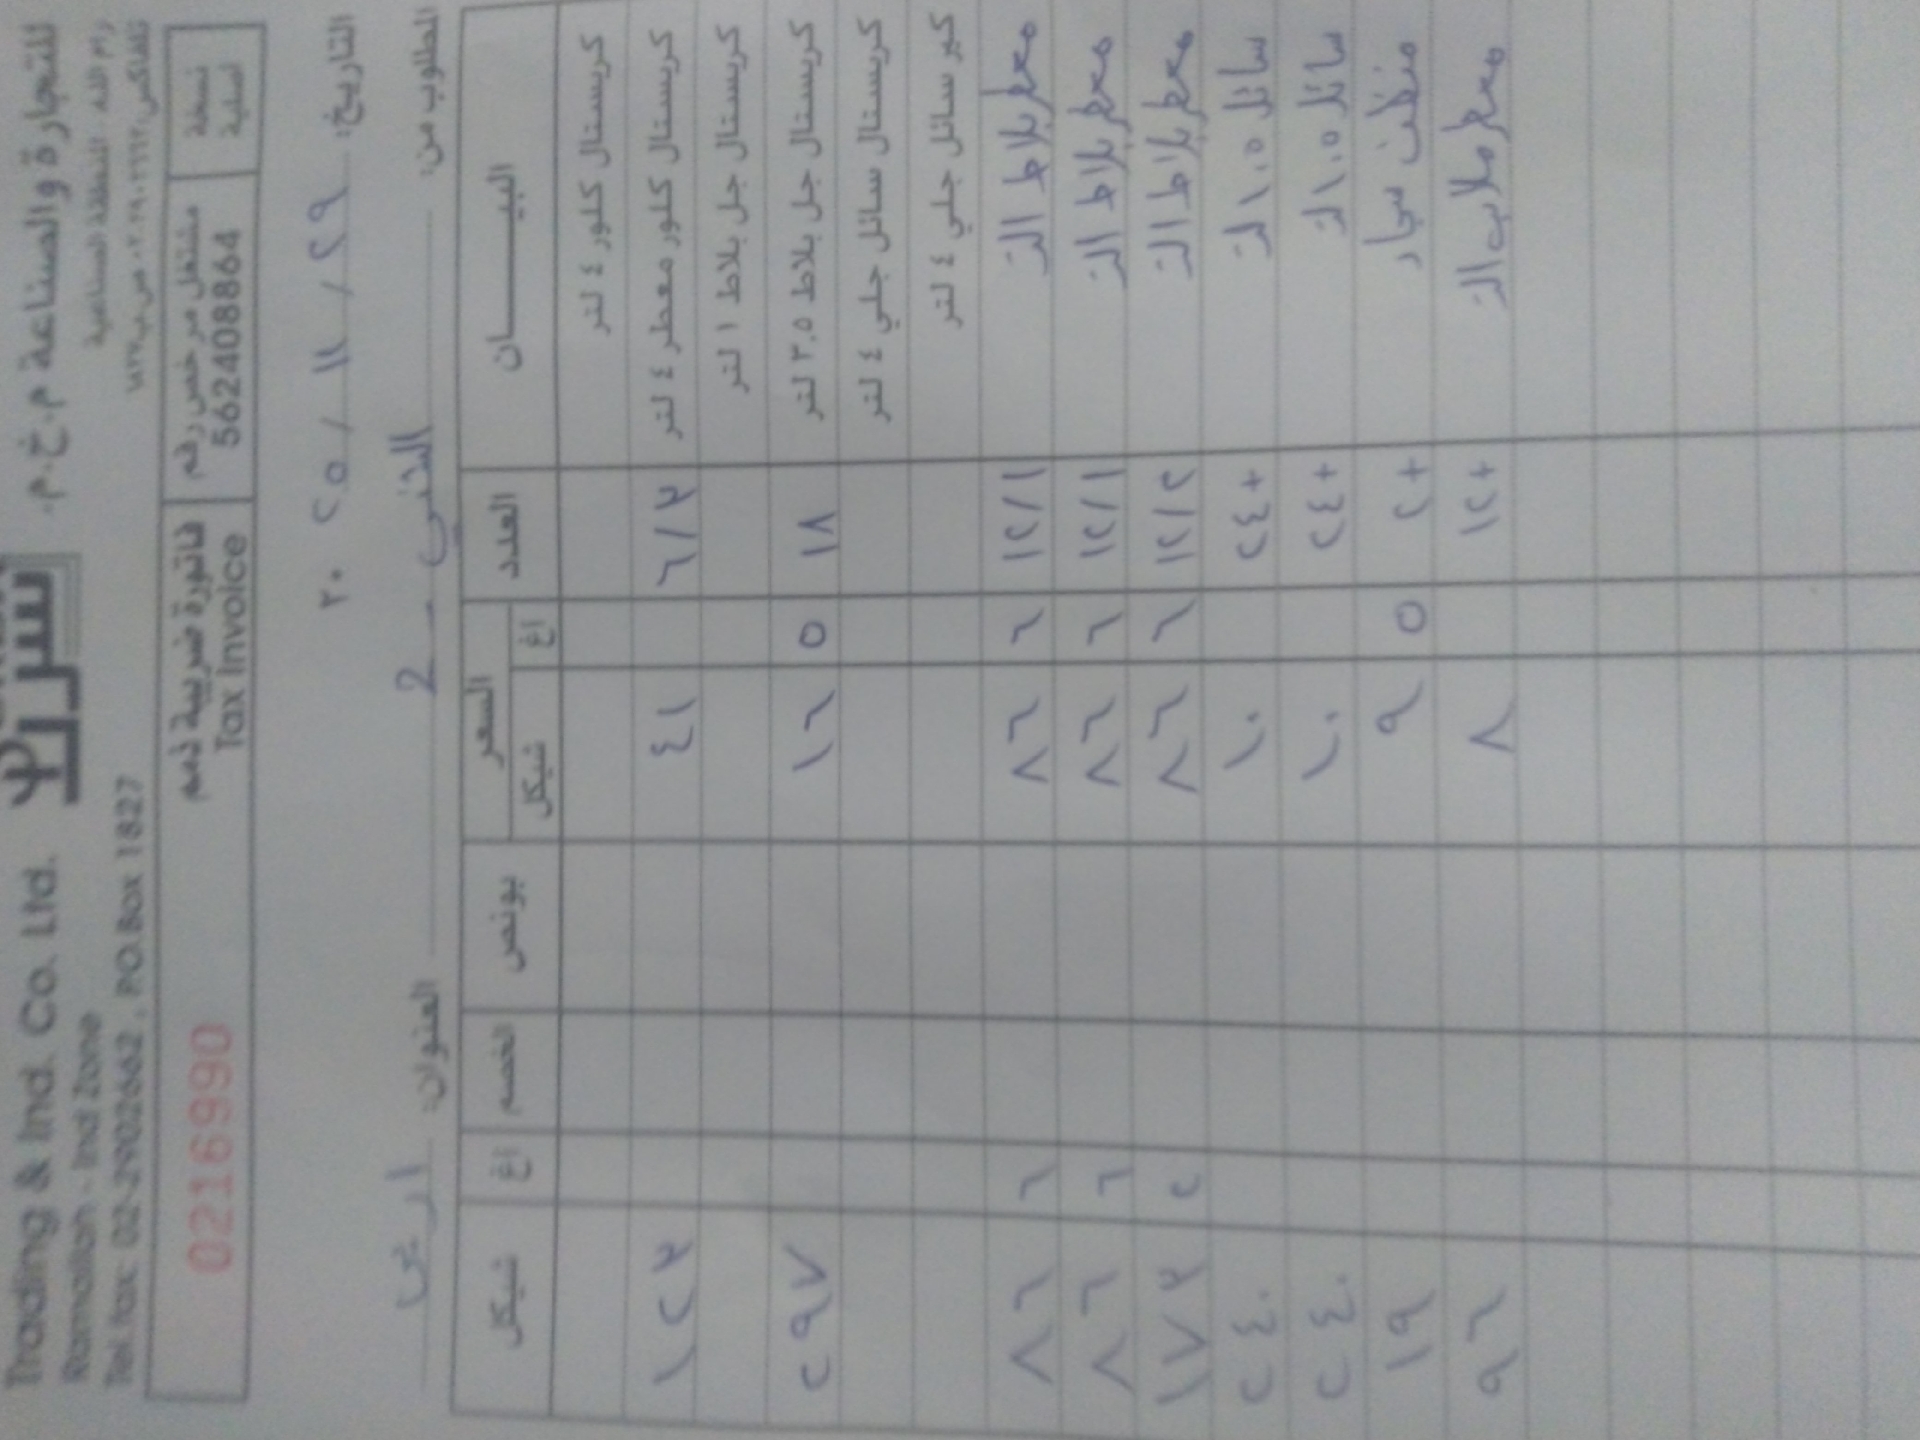 Trading & Ind. Co. Ltd.
للتجارة والصناعة م.خ.م.
Ramallah - Ind Zone
رام الله - المنطقة الصناعية
Tel fax: 02-2902662 , P.O.Box 1827
0216990
فاتورة ضريبية ذمم
Tax Invoice
مشتغل مرخص رقم
562408864
نسخة
أصلية
التاريخ: ٢٩ / ١١ / ٢٠٢٥
المطلوب من: - 2 العنوان:
البيـــــان العدد السعر بونص الخصم شيكل اغ
شيكل اغ
كريستال كلور ٤ لتر
كريستال كلور معطر ٤ لتر ٦/٣ ٤١ ١٢٣
كريستال جل بلاط ١ لتر
كريستال جل بلاط ٣,٥ لتر ١٨ ١٦ ٥ ٢٩٧
كريستال سائل جلي ٤ لتر
كير سائل جلي ٤ لتر
معطر بلاط ١لتر ١٢/١ ٨٦ ٦ ٨٦ ٦
معطر بلاط ١لتر ١٢/١ ٨٦ ٦ ٨٦ ٦
معطر بلاط ١لتر ١٢/٢ ٨٦ ٦ ١٧٣ ٢
سائل ١,٥ لتر +٢٤ ١٠ ٢٤٠
سائل ١,٥ لتر +٢٤ ١٠ ٢٤٠
منظف سجاد +٢ ٩ ٥ ١٩
معطر ملابس ١لتر +١٢ ٨ ٩٦